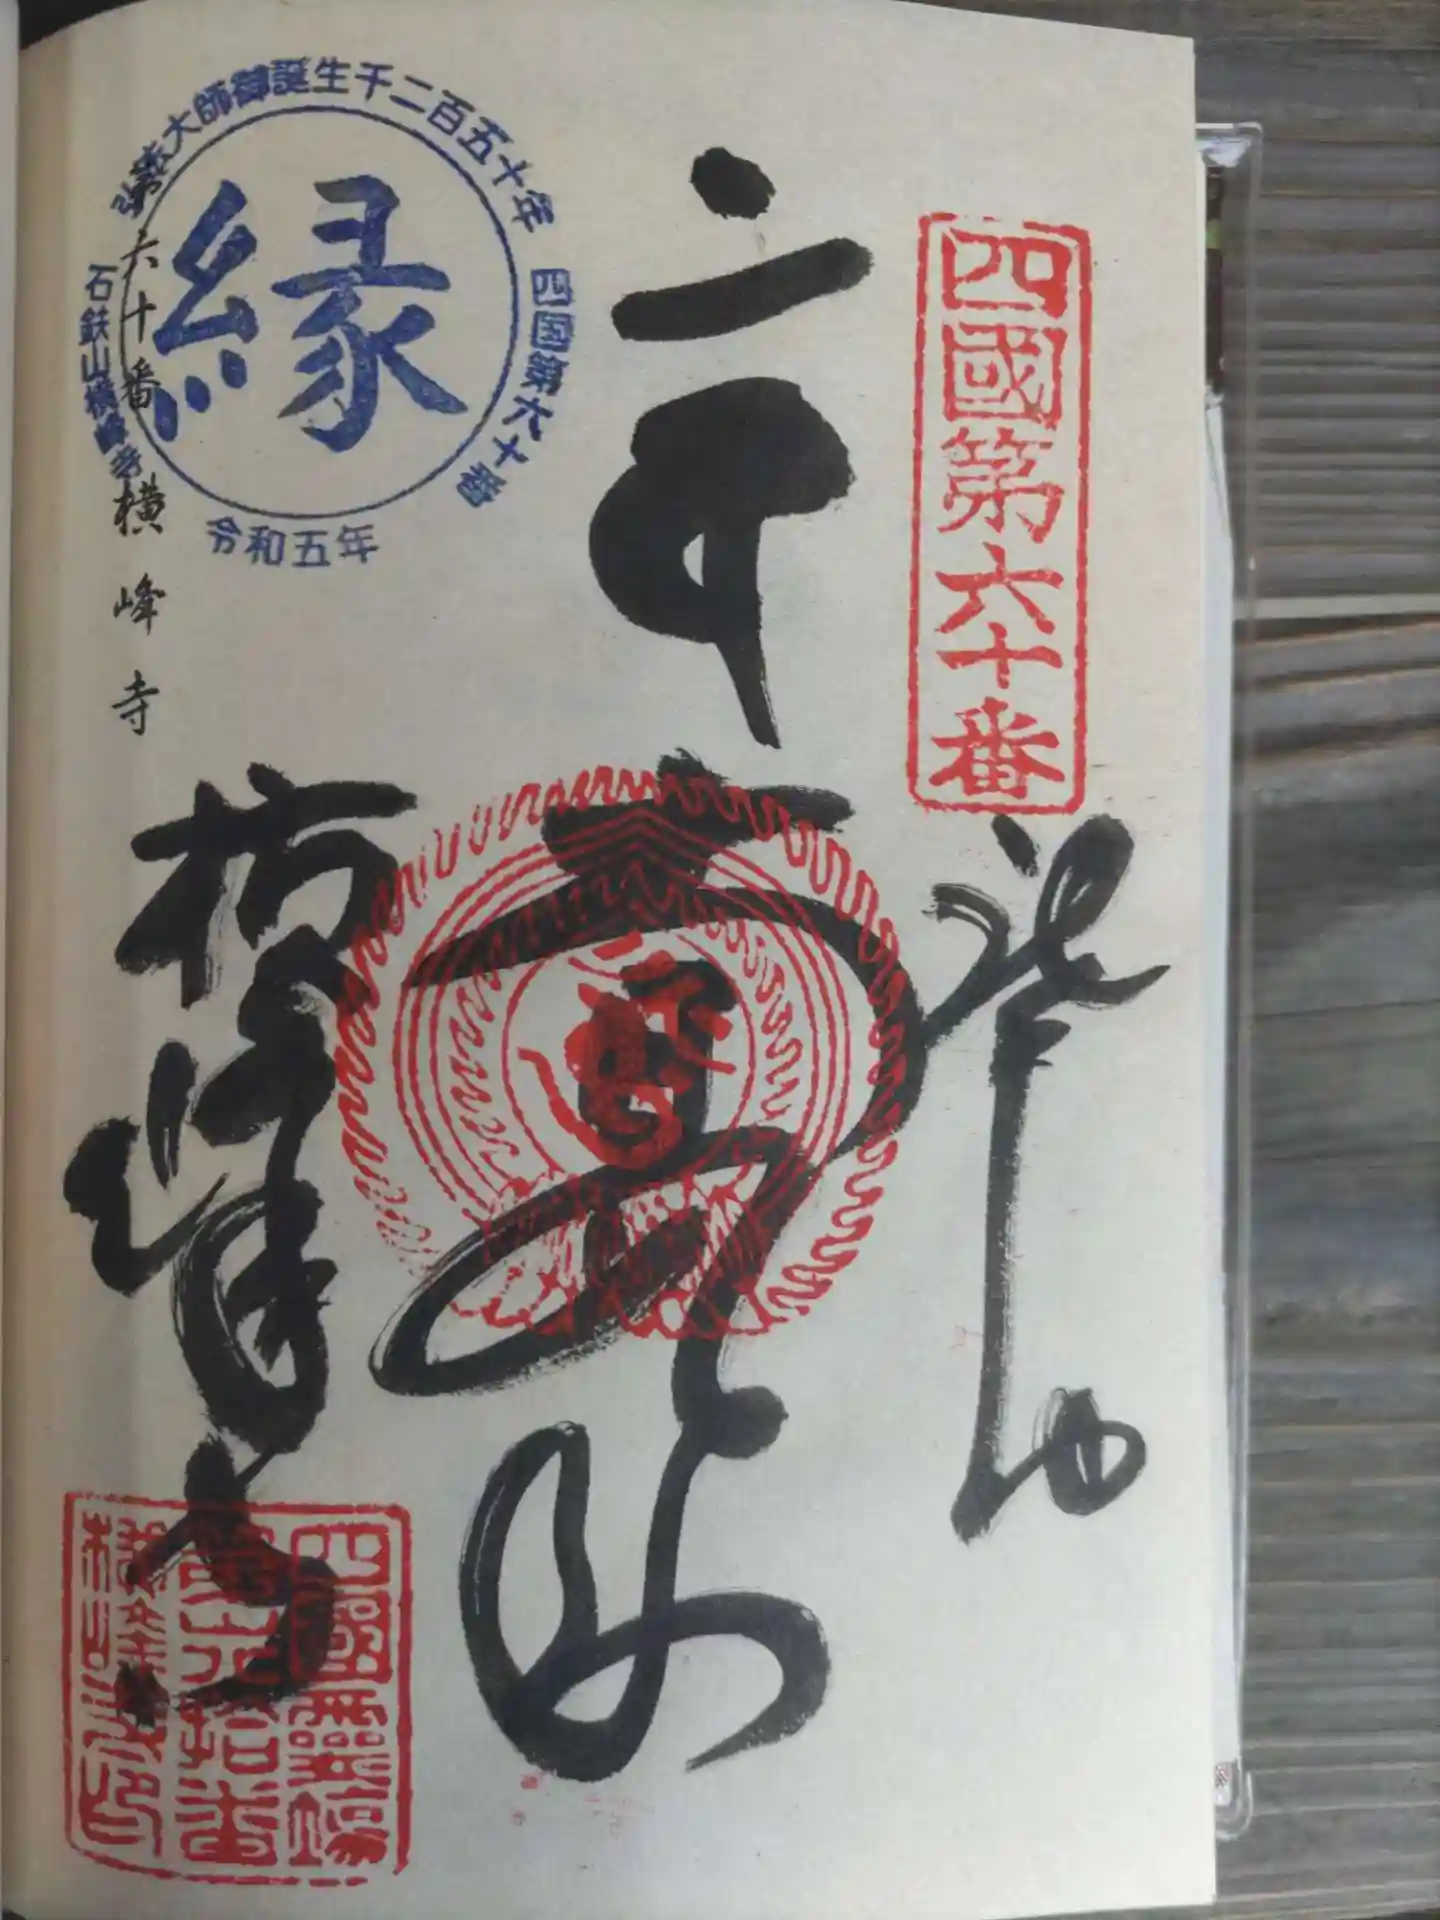 四國第六十番
奉納
大日如来
横峰寺
弘法大師御誕生千二百五十年
四国第六十番
石鉄山横峰寺
令和五年
縁
第六十番 横峰寺
四國霊場
第六拾番
横峰寺印